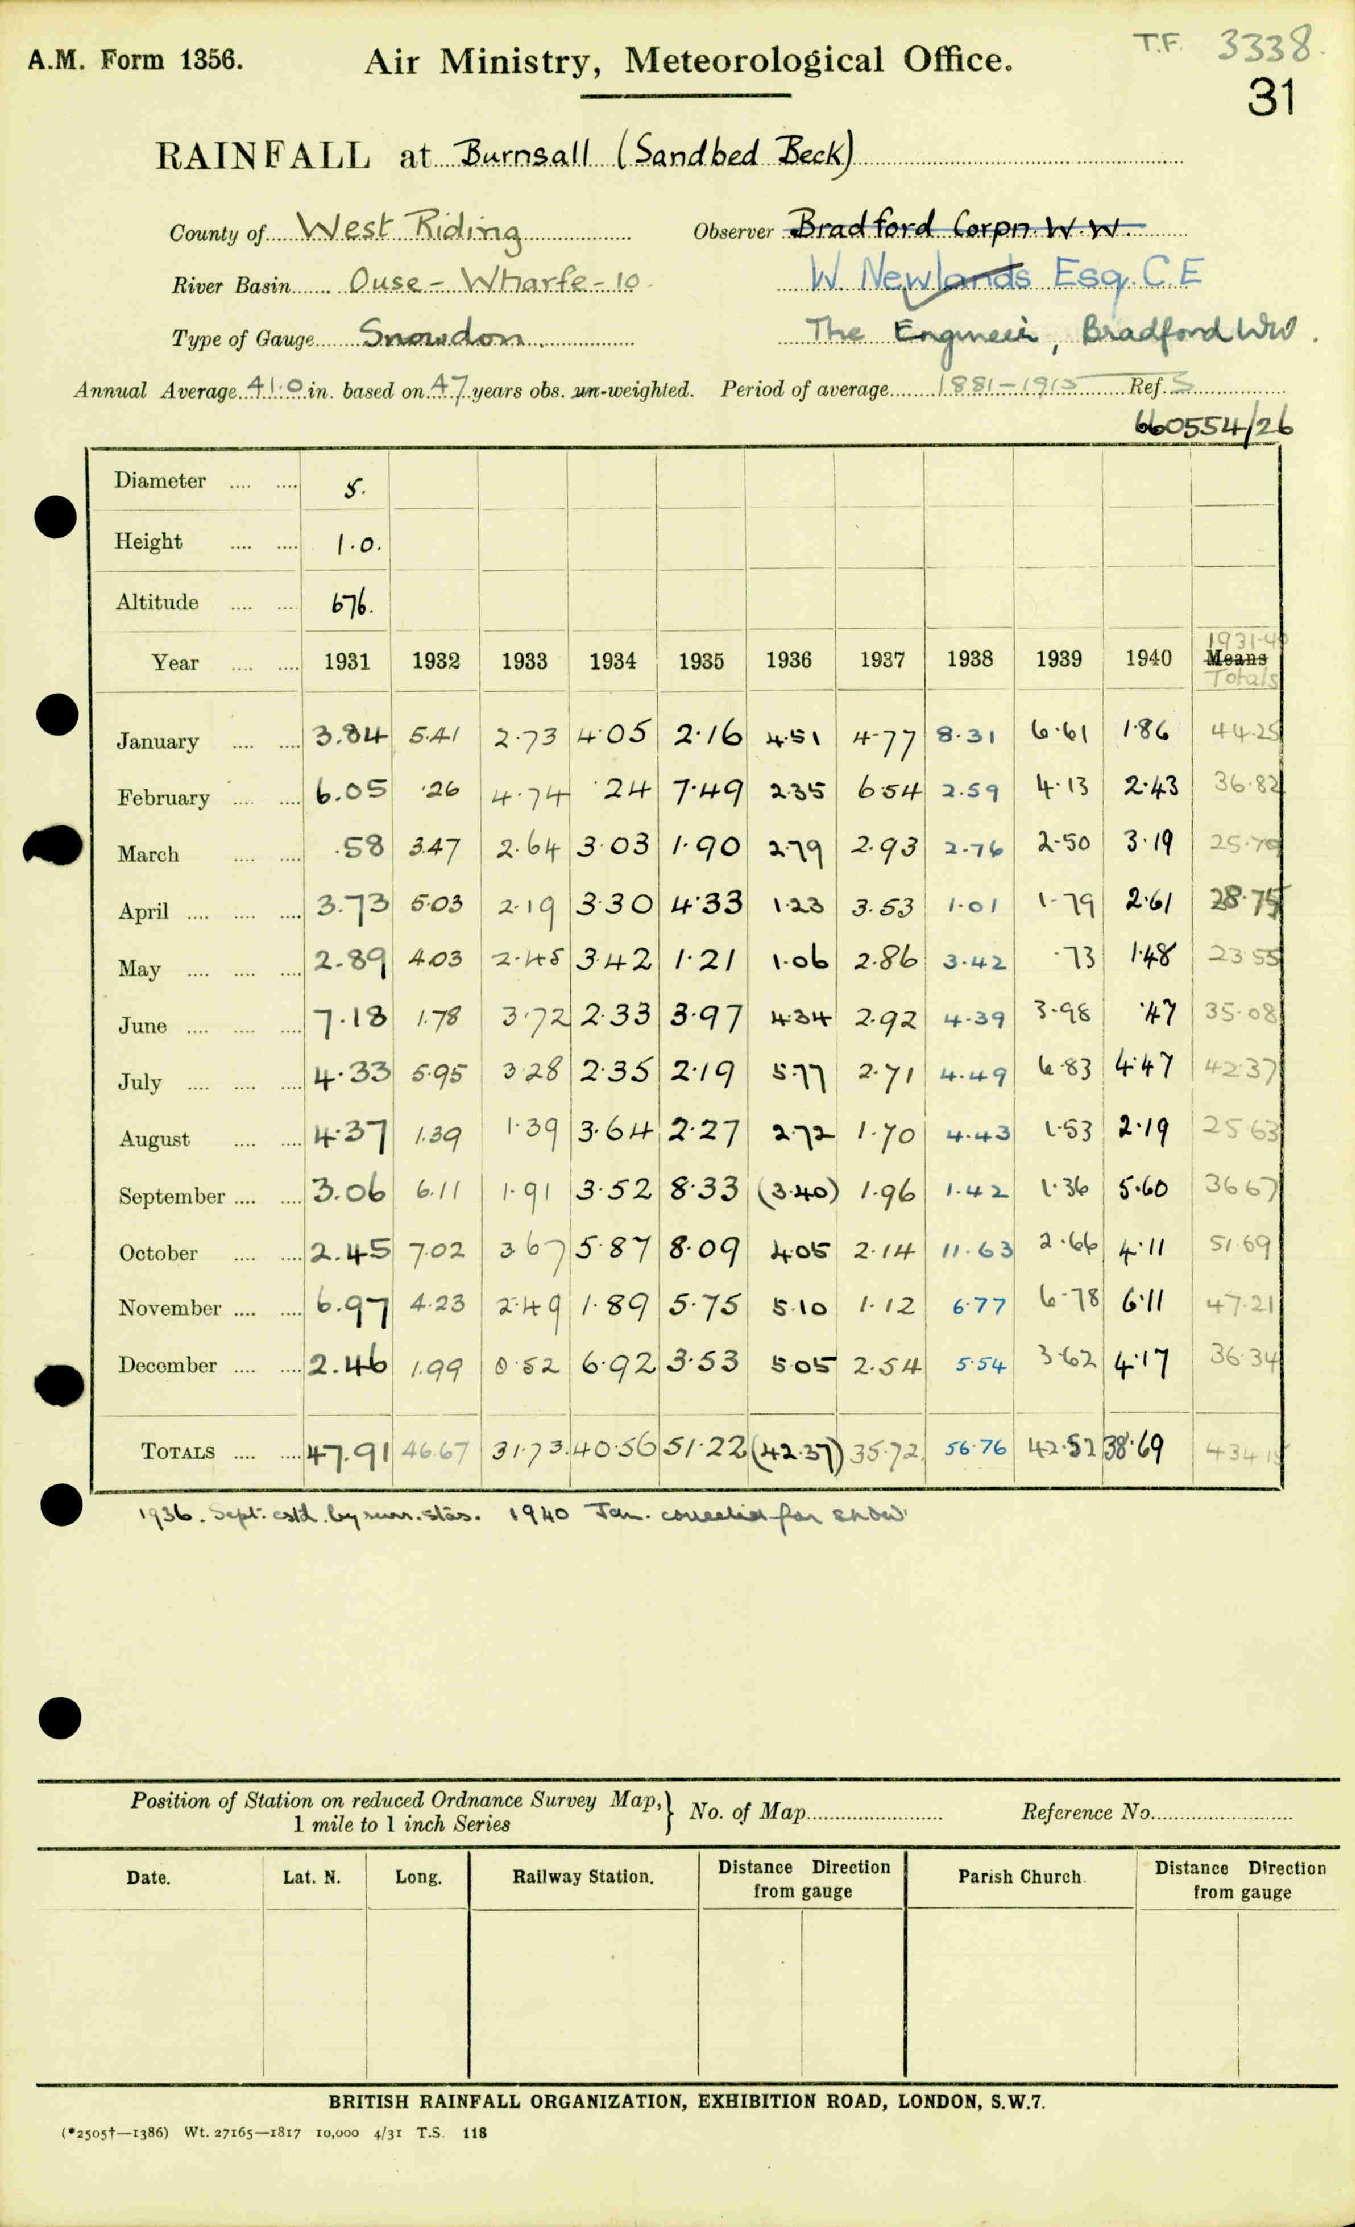 T.F. 3338.
A.M. Form 1356. Air Ministry, Meteorological Office.
31
RAINFALL at Burnsall (Sandbed Beck)
County of West Riding Observer Bradford Corpn. W.W.
River Basin Ouse - Wharfe - 10 W. Newlands Esq. C.E
Type of Gauge Snowdon. The Engineer, Bradford WW.
Annual Average 41.0 in. based on 47 years obs. un-weighted. Period of average 1881-1915 Ref. S
660554/26
Diameter .... .... 5.
Height .... .... 1.0.
Altitude .... .... 676.
1931-40
Year .... .... 1931 1932 1933 1934 1935 1936 1937 1938 1939 1940 Means
Totals
January .... .... 3.84 5.41 2.73 4.05 2.16 4.51 4.77 8.31 6.61 1.86 44.25
February .... .... 6.05 .26 4.74 .24 7.49 2.35 6.54 2.59 4.13 2.43 36.82
March .... .... .58 3.47 2.64 3.03 1.90 2.79 2.93 2.76 2.50 3.19 25.79
April .... .... .... 3.73 5.03 2.19 3.30 4.33 1.23 3.53 1.01 1.79 2.61 28.75
May .... .... .... 2.89 4.03 2.45 3.42 1.21 1.06 2.86 3.42 .73 1.48 23.55
June .... .... .... 7.18 1.78 3.72 2.33 3.97 4.34 2.92 4.39 3.98 .47 35.08
July .... .... .... 4.33 5.95 3.28 2.35 2.19 5.77 2.71 4.49 6.83 4.47 42.37
August .... .... 4.37 1.39 1.39 3.64 2.27 2.72 1.70 4.43 1.53 2.19 25.63
September .... .... 3.06 6.11 1.91 3.52 8.33 (3.40) 1.96 1.42 1.36 5.60 36.67
October .... .... 2.45 7.02 3.67 5.87 8.09 4.05 2.14 11.63 2.66 4.11 51.69
November .... .... 6.97 4.23 2.49 1.89 5.75 5.10 1.12 6.77 6.78 6.11 47.21
December .... .... 2.46 1.99 0.52 6.92 3.53 5.05 2.54 5.54 3.62 4.17 36.34
TOTALS .... .... 47.91 46.67 31.73. 40.56 51.22 (42.37) 35.72 56.76 42.52 38.69 434.15
1936. Sept: estd. by surr. stns. 1940 Jan. corrected for snow
Position of Station on reduced Ordnance Survey Map,} No. of Map Reference No.
1 mile to 1 inch Series
Date. Lat. N. Long. Railway Station. Distance Direction from gauge Parish Church. Distance Direction from gauge
BRITISH RAINFALL ORGANIZATION, EXHIBITION ROAD, LONDON, S.W.7.
(*2505†—1386) Wt. 27165—1817 10,000 4/31 T.S. 118